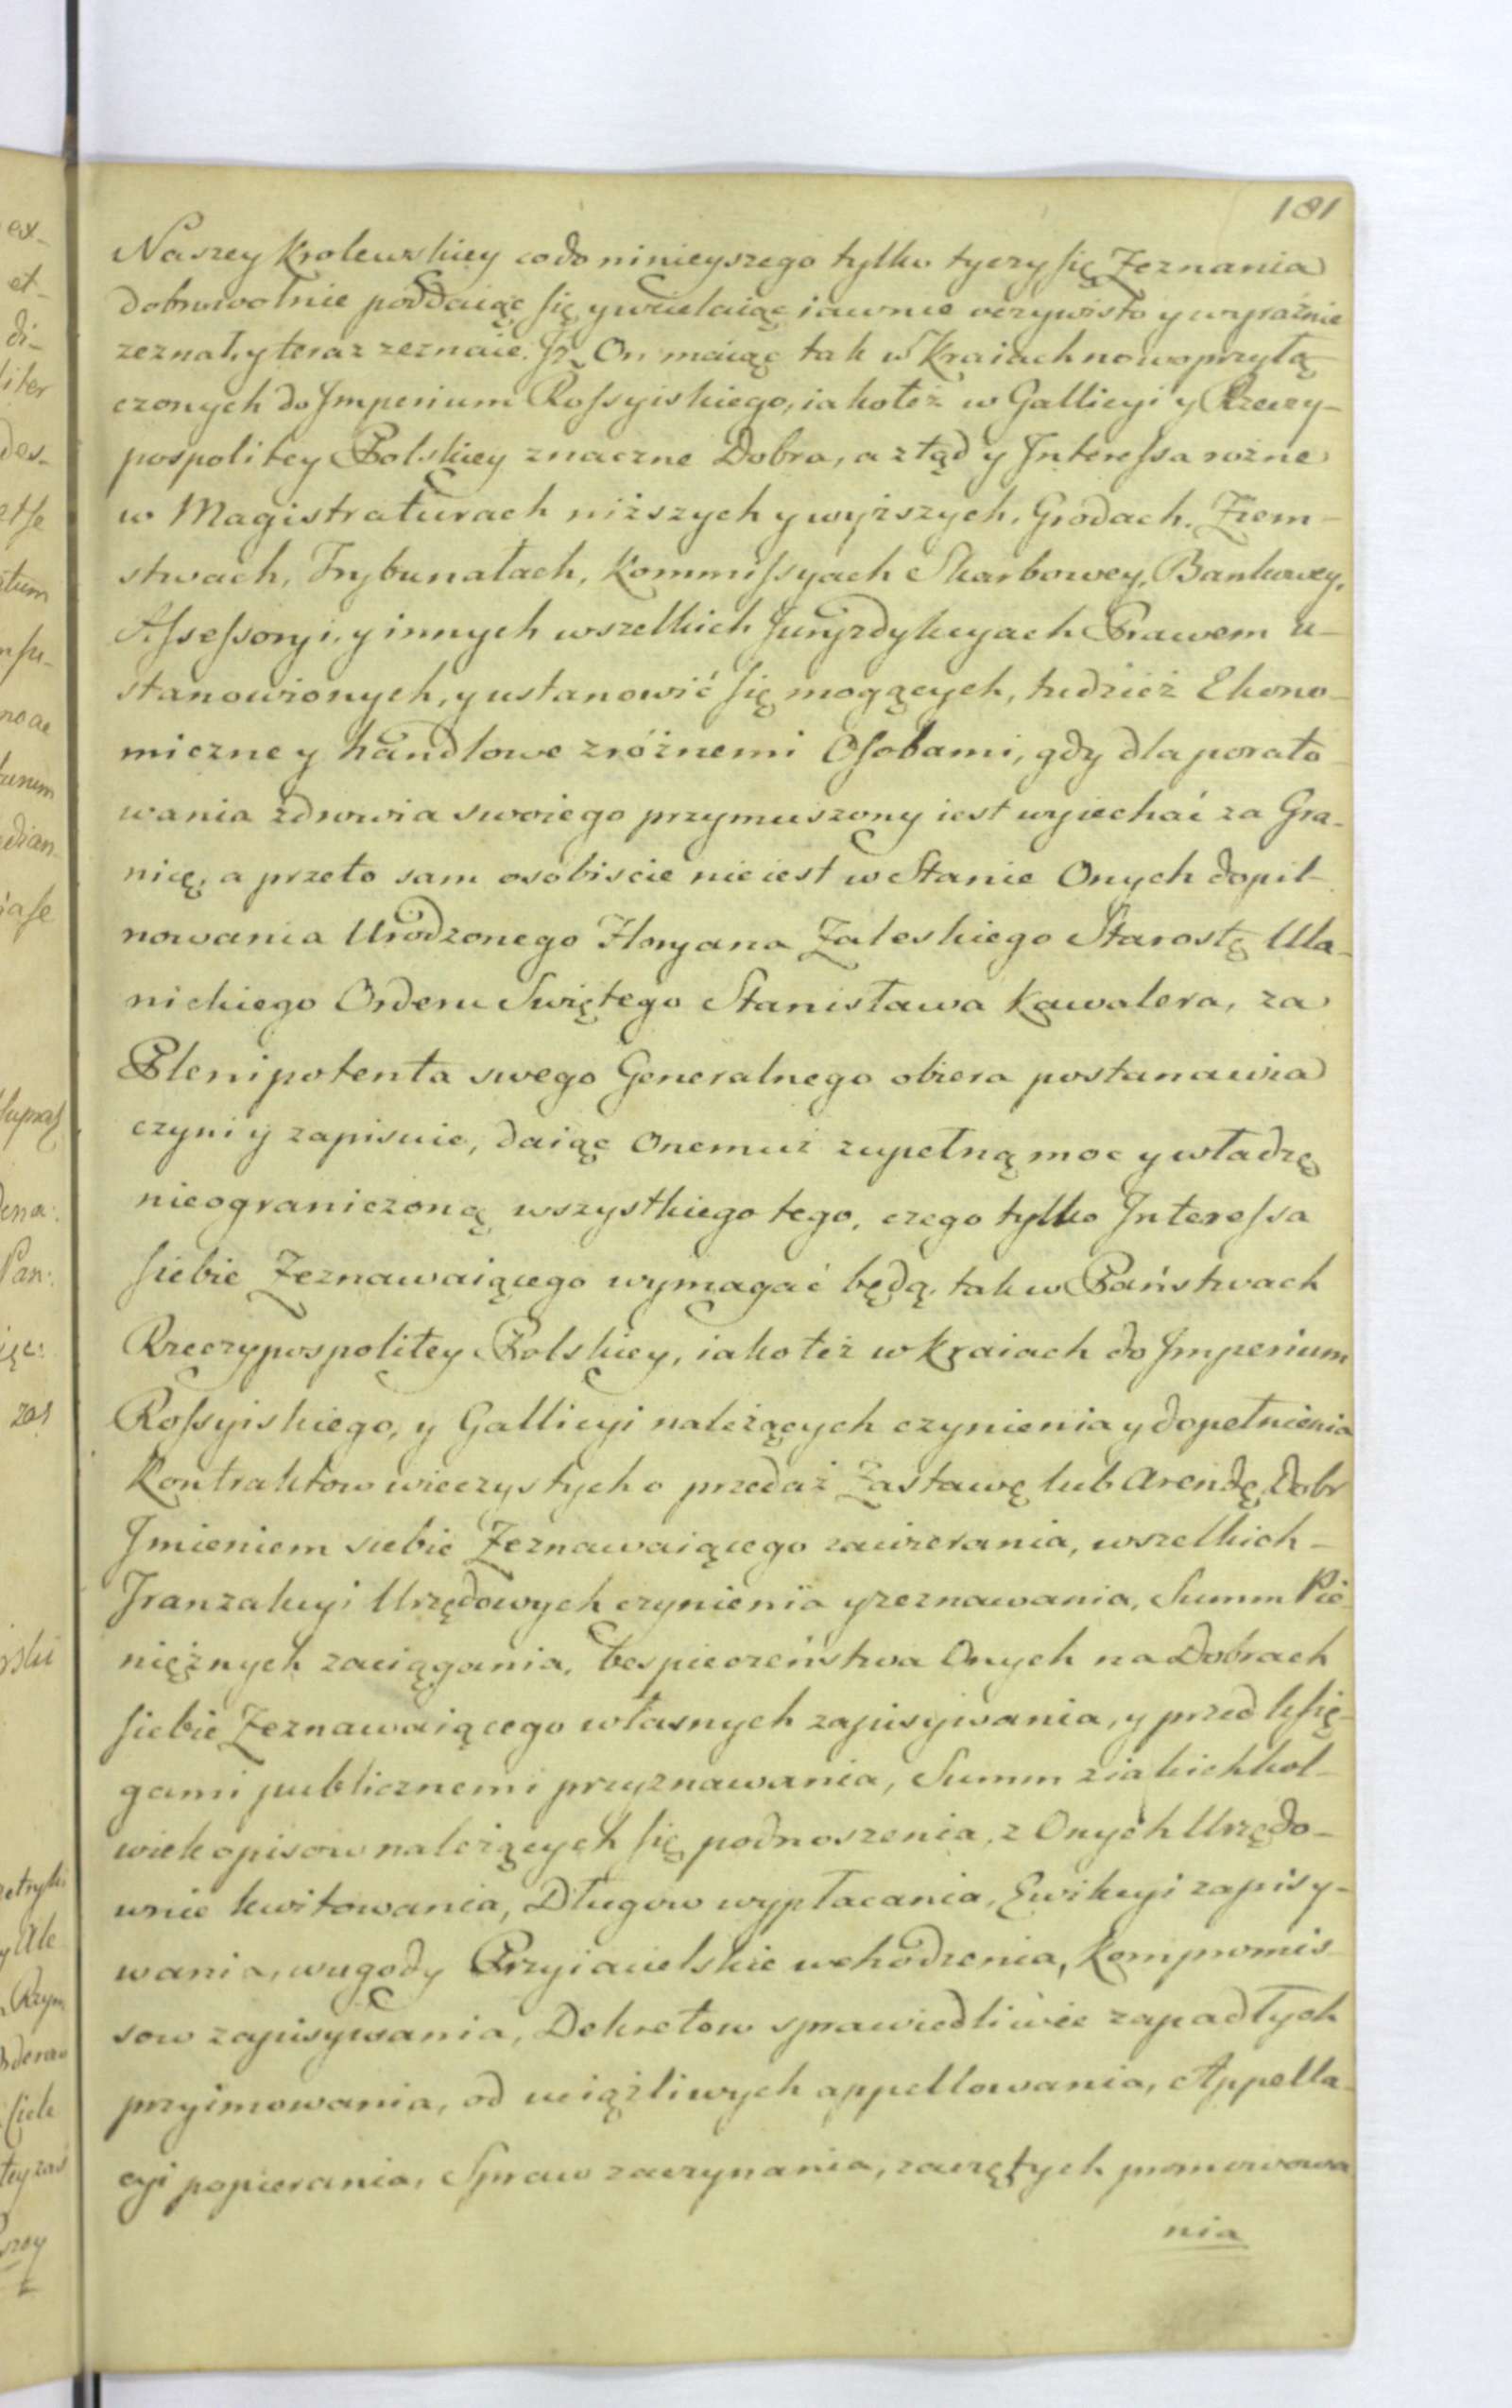 181
Naszey Krolewskiey codo ninieyszego tylko tyczy się Zeznania
dobrowolnie poddaiąc się y wcielaiąc iawnie oczywisto y wyraźnie
zeznał, y teraz zeznaie. Jż On maiąc tak w Kraiach nowoprzyłą
czonych do Jmperium Rossyiskiego, iakoteż w Gallicyi y Rzeczy-
pospolitey Polskiey znaczne Dobra, a ztąd y Jnteressa rożne
w Magistraturach niższych y wyższych, Grodach, Ziem-
stwach, Trybunałach, Kommissyach Skarbowey, Bankowey,
Assessoryi, y innych wszelkich Juryzdykcyach Prawem u-
stanowionych, y ustanowić się mogących, tudzież Ekono-
miczne y handlowe zróżnemi Osobami, gdy dla porato-
wania zdrowia swoiego przymuszony iest wyiechać za Gra-
nicę, a przeto sam osobiscie nieiest w Stanie Onych dopil-
nowania Urodzonego Floryana Zaleskiego Starostę Ula-
nickiego Orderu Swiętego Stanisława Kawalera, za
Plenipotenta swego Generalnego obiera postanawia
czyni y zapisuie, daiąc Onemuż zupełną moc y władzę
nieograniczoną wszystkiego tego, czego tylko Jnteressa
siebie Zeznawaiącego wymagać będą, tak w Państwach
Rzeczypospolitey Polskiey, iako też w Kraiach do Jmperium
Rossyiskiego, y Gallicyi należących czynienia y dopełnienia
Kontraktow wieczystych o przedaż Zastawę lub Arendę Dobr
Jmieniem siebie Zeznawaiącego zawierania, wszelkich-
Tranzakcyi Urzędowych czynienia y zeznawania, Summ Pie-
niężnych zaciągania, bespieczeństwa Onych na Dobrach
siebie Zeznawaiącego własnych zapisywania, y przed Księ-
gami publicznemi przyznawania, Summ ziakichkol-
wiek opisow należących się podnoszenia, z Onych Urzędo-
wnie kwitowania, Długow wypłacania, Ewikcyi zapisy-
wania, wugody Przyiacielskie wchodzenia, Kompromis-
sow zapisywania, Dekretow sprawiedliwie zapadłych
przyimowania, od uciążliwych appellowania, Appella-
cyi popierania, Spraw zaczynania, zaczętych promowowa
nia